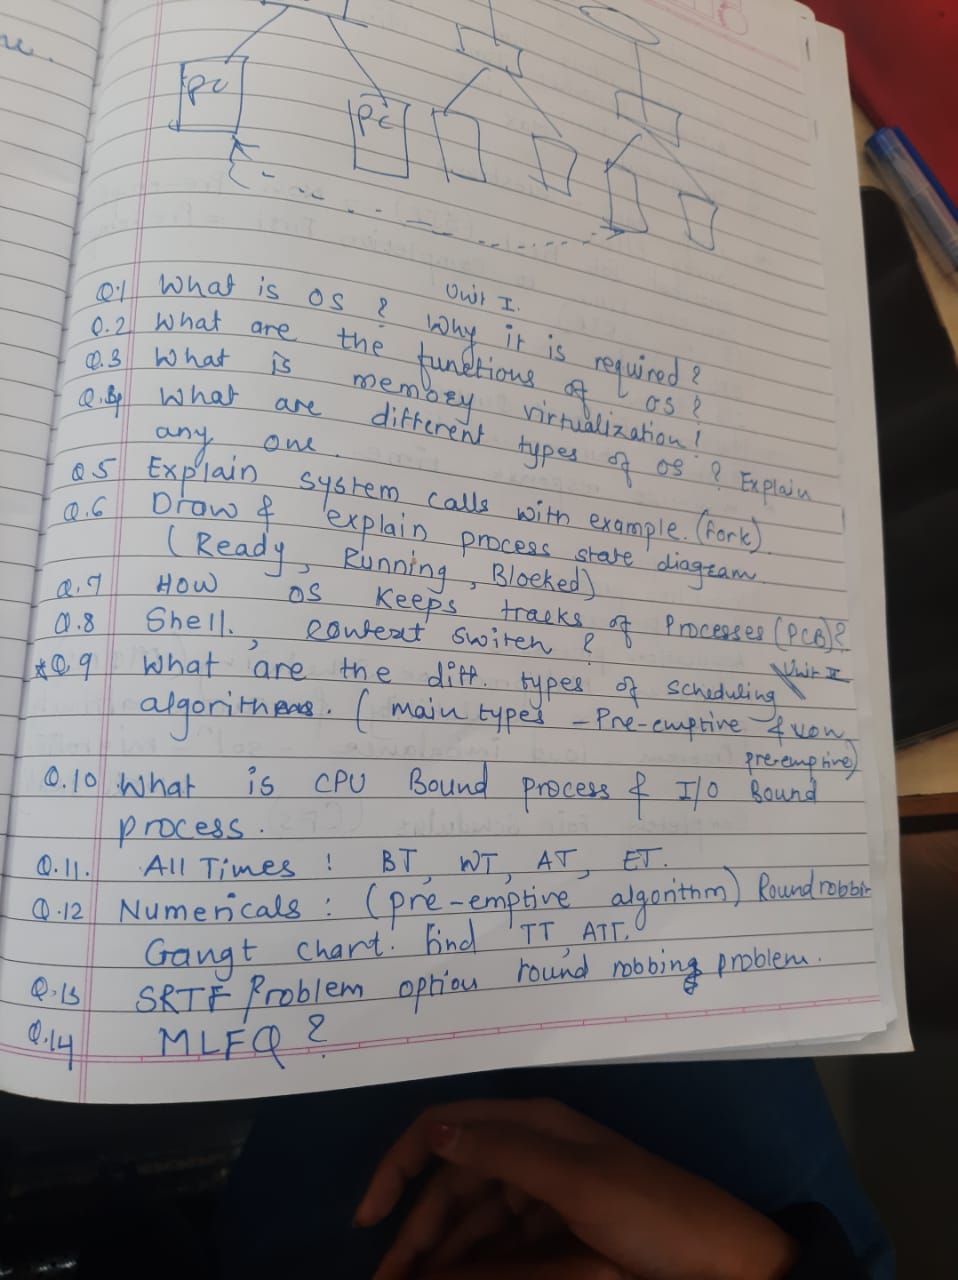 re.
PC
PC
Unit I.
Q.1 What is OS ? Why it is required ?
Q.2 What are the functions of OS ?
Q.3 What is memory virtualization !
Q.4 What are different types of OS ? Explain
any one.
Q 5 Explain system calls with example. (fork)
Q.6 Draw & explain process state diagram
(Ready, Running, Blocked)
Q.7 How OS keeps tracks of Processes (PCB)?
Q.8 Shell, context switch ?
Unit II
*Q.9 What are the diff. types of scheduling
algorithms. (main types - Pre-emptive & non
pre-emptive)
Q.10 What is CPU Bound process & I/O Bound
process.
Q.11. All Times ! BT, WT, AT, ET.
Q.12 Numericals : (pre-emptive algorithm) Round robbin
Gangt chart. find TT, ATT.
Q.13 SRTF Problem option round robbing problem.
Q.14 MLFQ ?